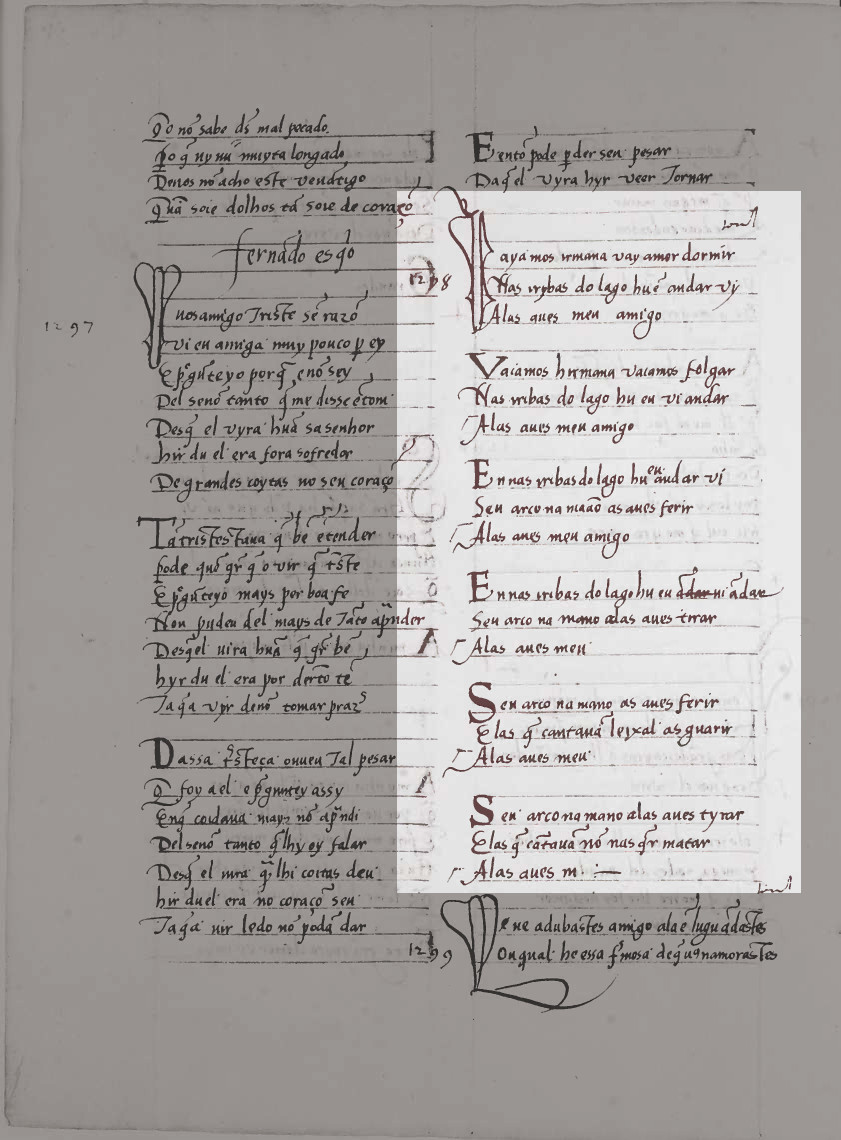 Qo nō sabe ds̄ mal pecado.
Po q̄ uy mī muyta longado
Demos nō acho este vendtigo
Quā soie dolhos tā soie de coraçō
fernādo esq̄o
1297
Vuosamigo Triste sē razō
vi eu amiga muy pouco p ey
E pºgūteyo porq̄ enō sey
Del senō tanto q̄ me disse ētom
Desq̄ el vyra huā sa senhor
hir du el era fora sofredor
De grandes coytas no seu coraçō
Tā tristestaua q̄ bē ētender
pode quē qr̄ q̄ o vir q̄ t̄ste
E pºgūteyo mays per boa fe
Non pudeu del mays de Tāto apnder
Desq̄el uira huā q̄ qr̄ bē
hyr du el era por derēto tē
Ta q̄a vyr denō tomar praz
Dassa tˢteça ouueu Tal pesar
Q foy a el e pgūntey assy
Enq̄ coidaua mays nō apndi
Del senō tanto q̄lhy ey falar
Desq̄ el uira q̄ lhi coitas deu
hir duel era no coraçō seu
Ta q̄a uir ledo nō podā dar
E entō pode perder seu pesar
Daq̄ el vyra hyr veer Tornar
1298
Vayamos irmana vay amor dormir
Nas rrybas do lago hu eu andar vy
Alas aues meu amigo
Vaiamos hirmana vaiamos folgar
Nas rribas do lago hu eu vi andar
Alas aues meu amigo
En nas rribas do lago hu eu andar vi
Seu arco na maāo as aues ferir
Alas aues meu amigo
En nas rribas do lago hu eu ādar ui ādar
Seu arco na mano alas aues tirar
Alas aues meu
Seu arco na mano as aues ferir
Elas q̄ cantauā leixal as guarir
Alas aues meu
Seu arco na mano alas aues tyrar
Elas q̄ cātauā nō nas qr̄ matar
Alas aues m
1299
Vene adubastes amigo alaē lugu ādastes
Ou qual he essa fmosa deq̄ uˢ namorastes